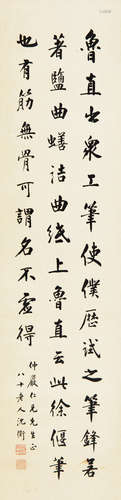 魯直出衆工筆使僕歷試之筆鋒若
著鹽曲蟮詰曲紙上魯直云此徐偃筆
也有筋無骨可謂名不虛得
仲嚴仁兄先生正
八十老人沈衛